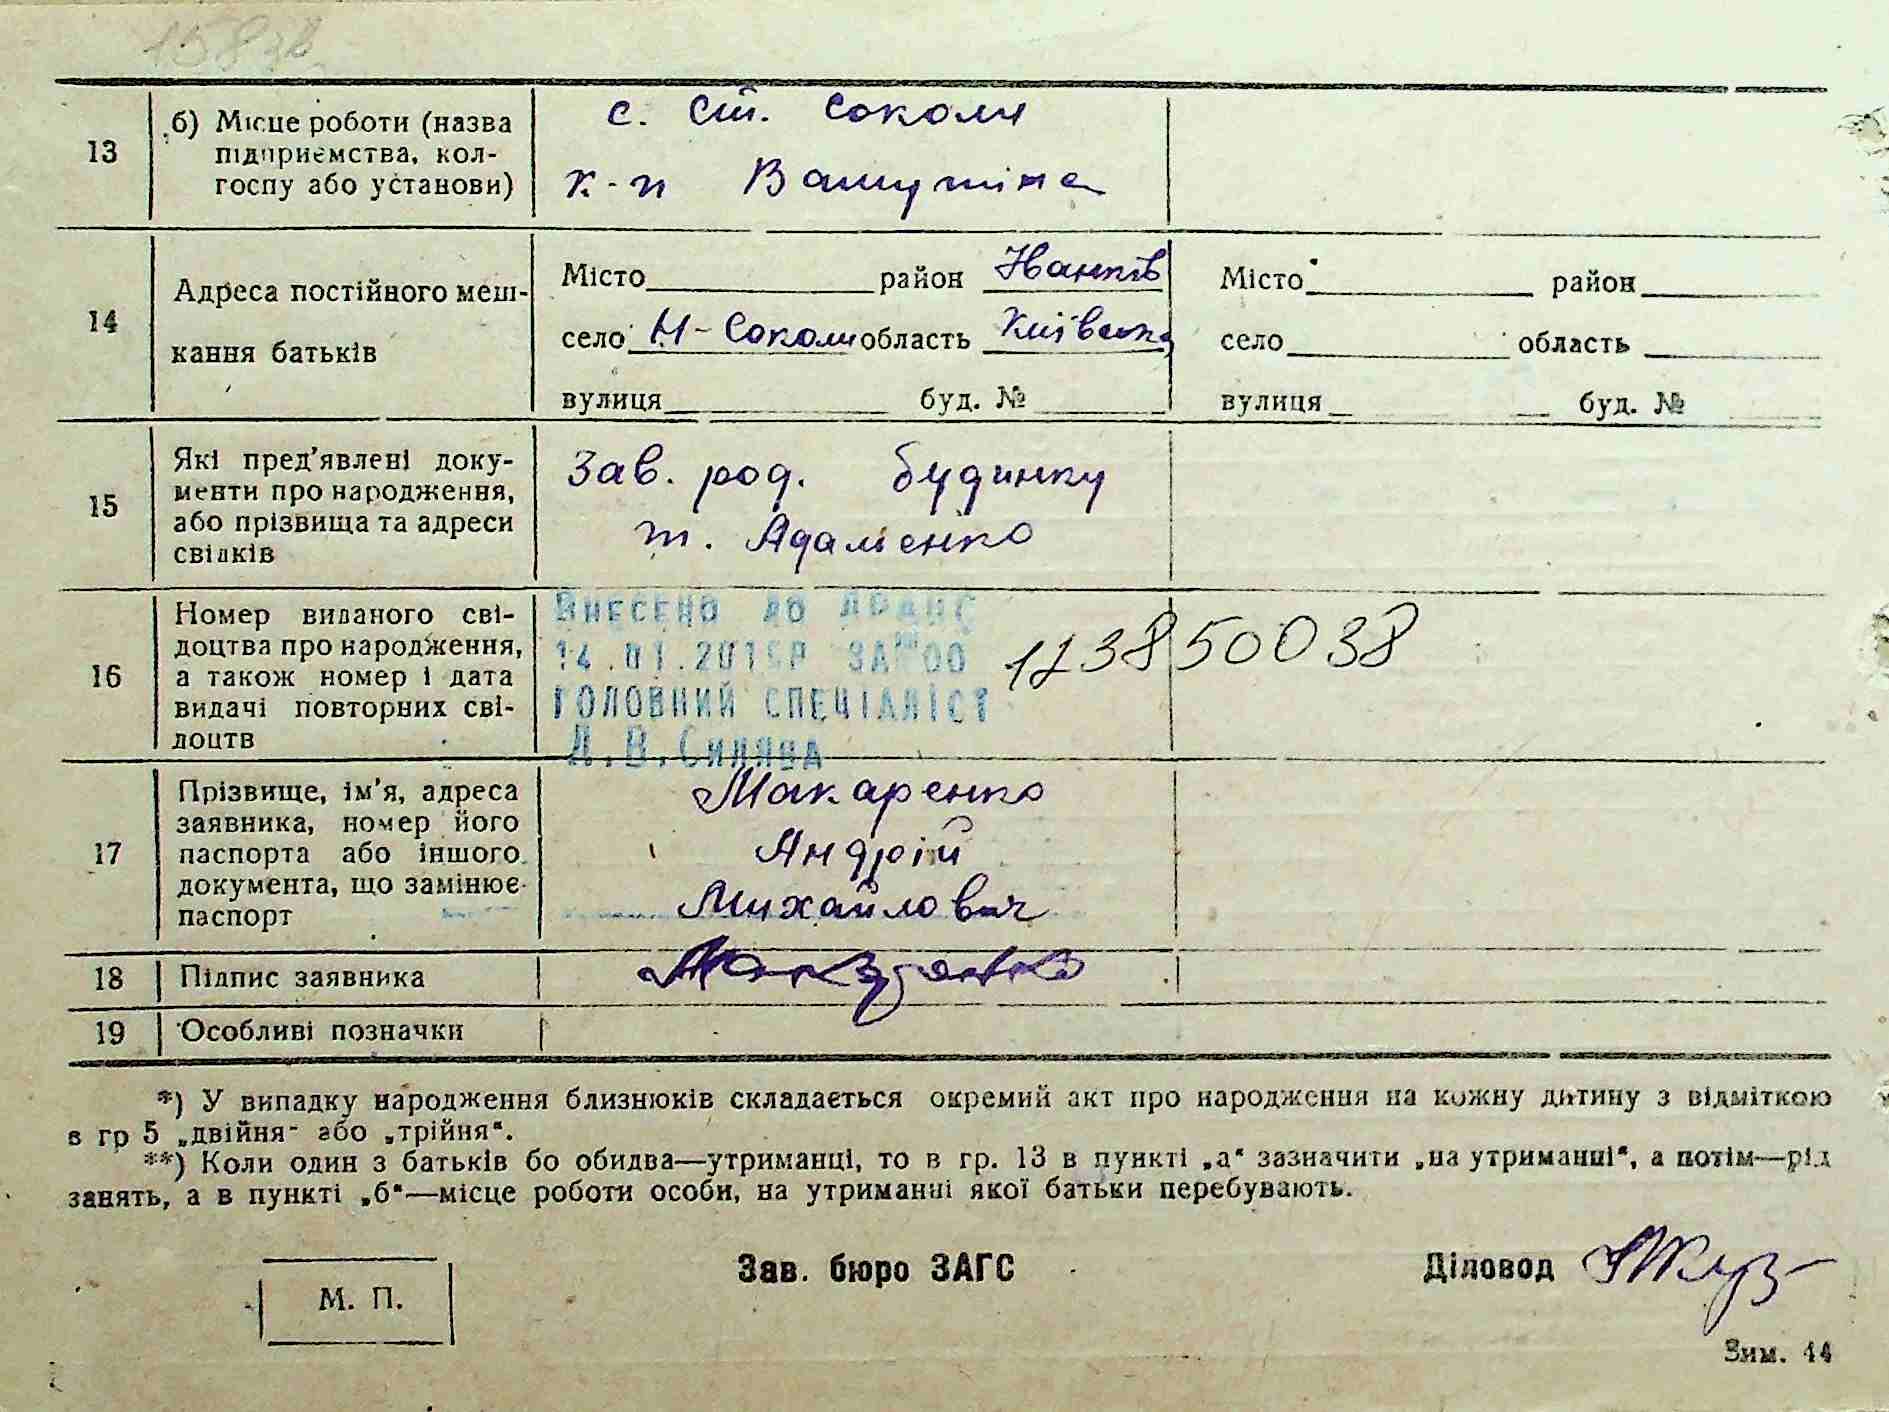 158зв
13
б) Місце роботи (назва
підприємства, кол-
госпу або установи)
с. Ст. Соколи
к-п Ватутіна
14
Адреса постійного меш-
кання батьків
Місто район Іванків
село Н-Соколи область Київська
вулиця буд. №
Місто район
село область
вулиця буд. №
15
Які пред'явлені доку-
менти про народження,
або прізвища та адреси
свідків
Зав. род. будинку
т. Адаменко
16
Номер виданого сві-
доцтва про народження,
а також номер і дата
видачі повторних сві-
доцтв
ВНЕСЕНО ДО ДРАЦС
14.01.2015Р ЗА №00
ГОЛОВНИЙ СПЕЦІАЛІСТ
Л.В.Синява
123850038
17
Прізвище, ім'я, адреса
заявника, номер його
паспорта або іншого
документа, що замінює
паспорт
Макаренко
Андрій
Михайлович
18
Підпис заявника
Макаренко
19
Особливі позначки
*) У випадку народження близнюків складається окремий акт про народження на кожну дитину з відміткою
в гр 5 „двійня" або „трійня".
**) Коли один з батьків бо обидва—утриманці, то в гр. 13 в пункті „а" зазначити „на утриманні", а потім—рід
занять, а в пункті „б"—місце роботи особи, на утриманні якої батьки перебувають.
М. П.
Зав. бюро ЗАГС
Діловод
Зим. 44